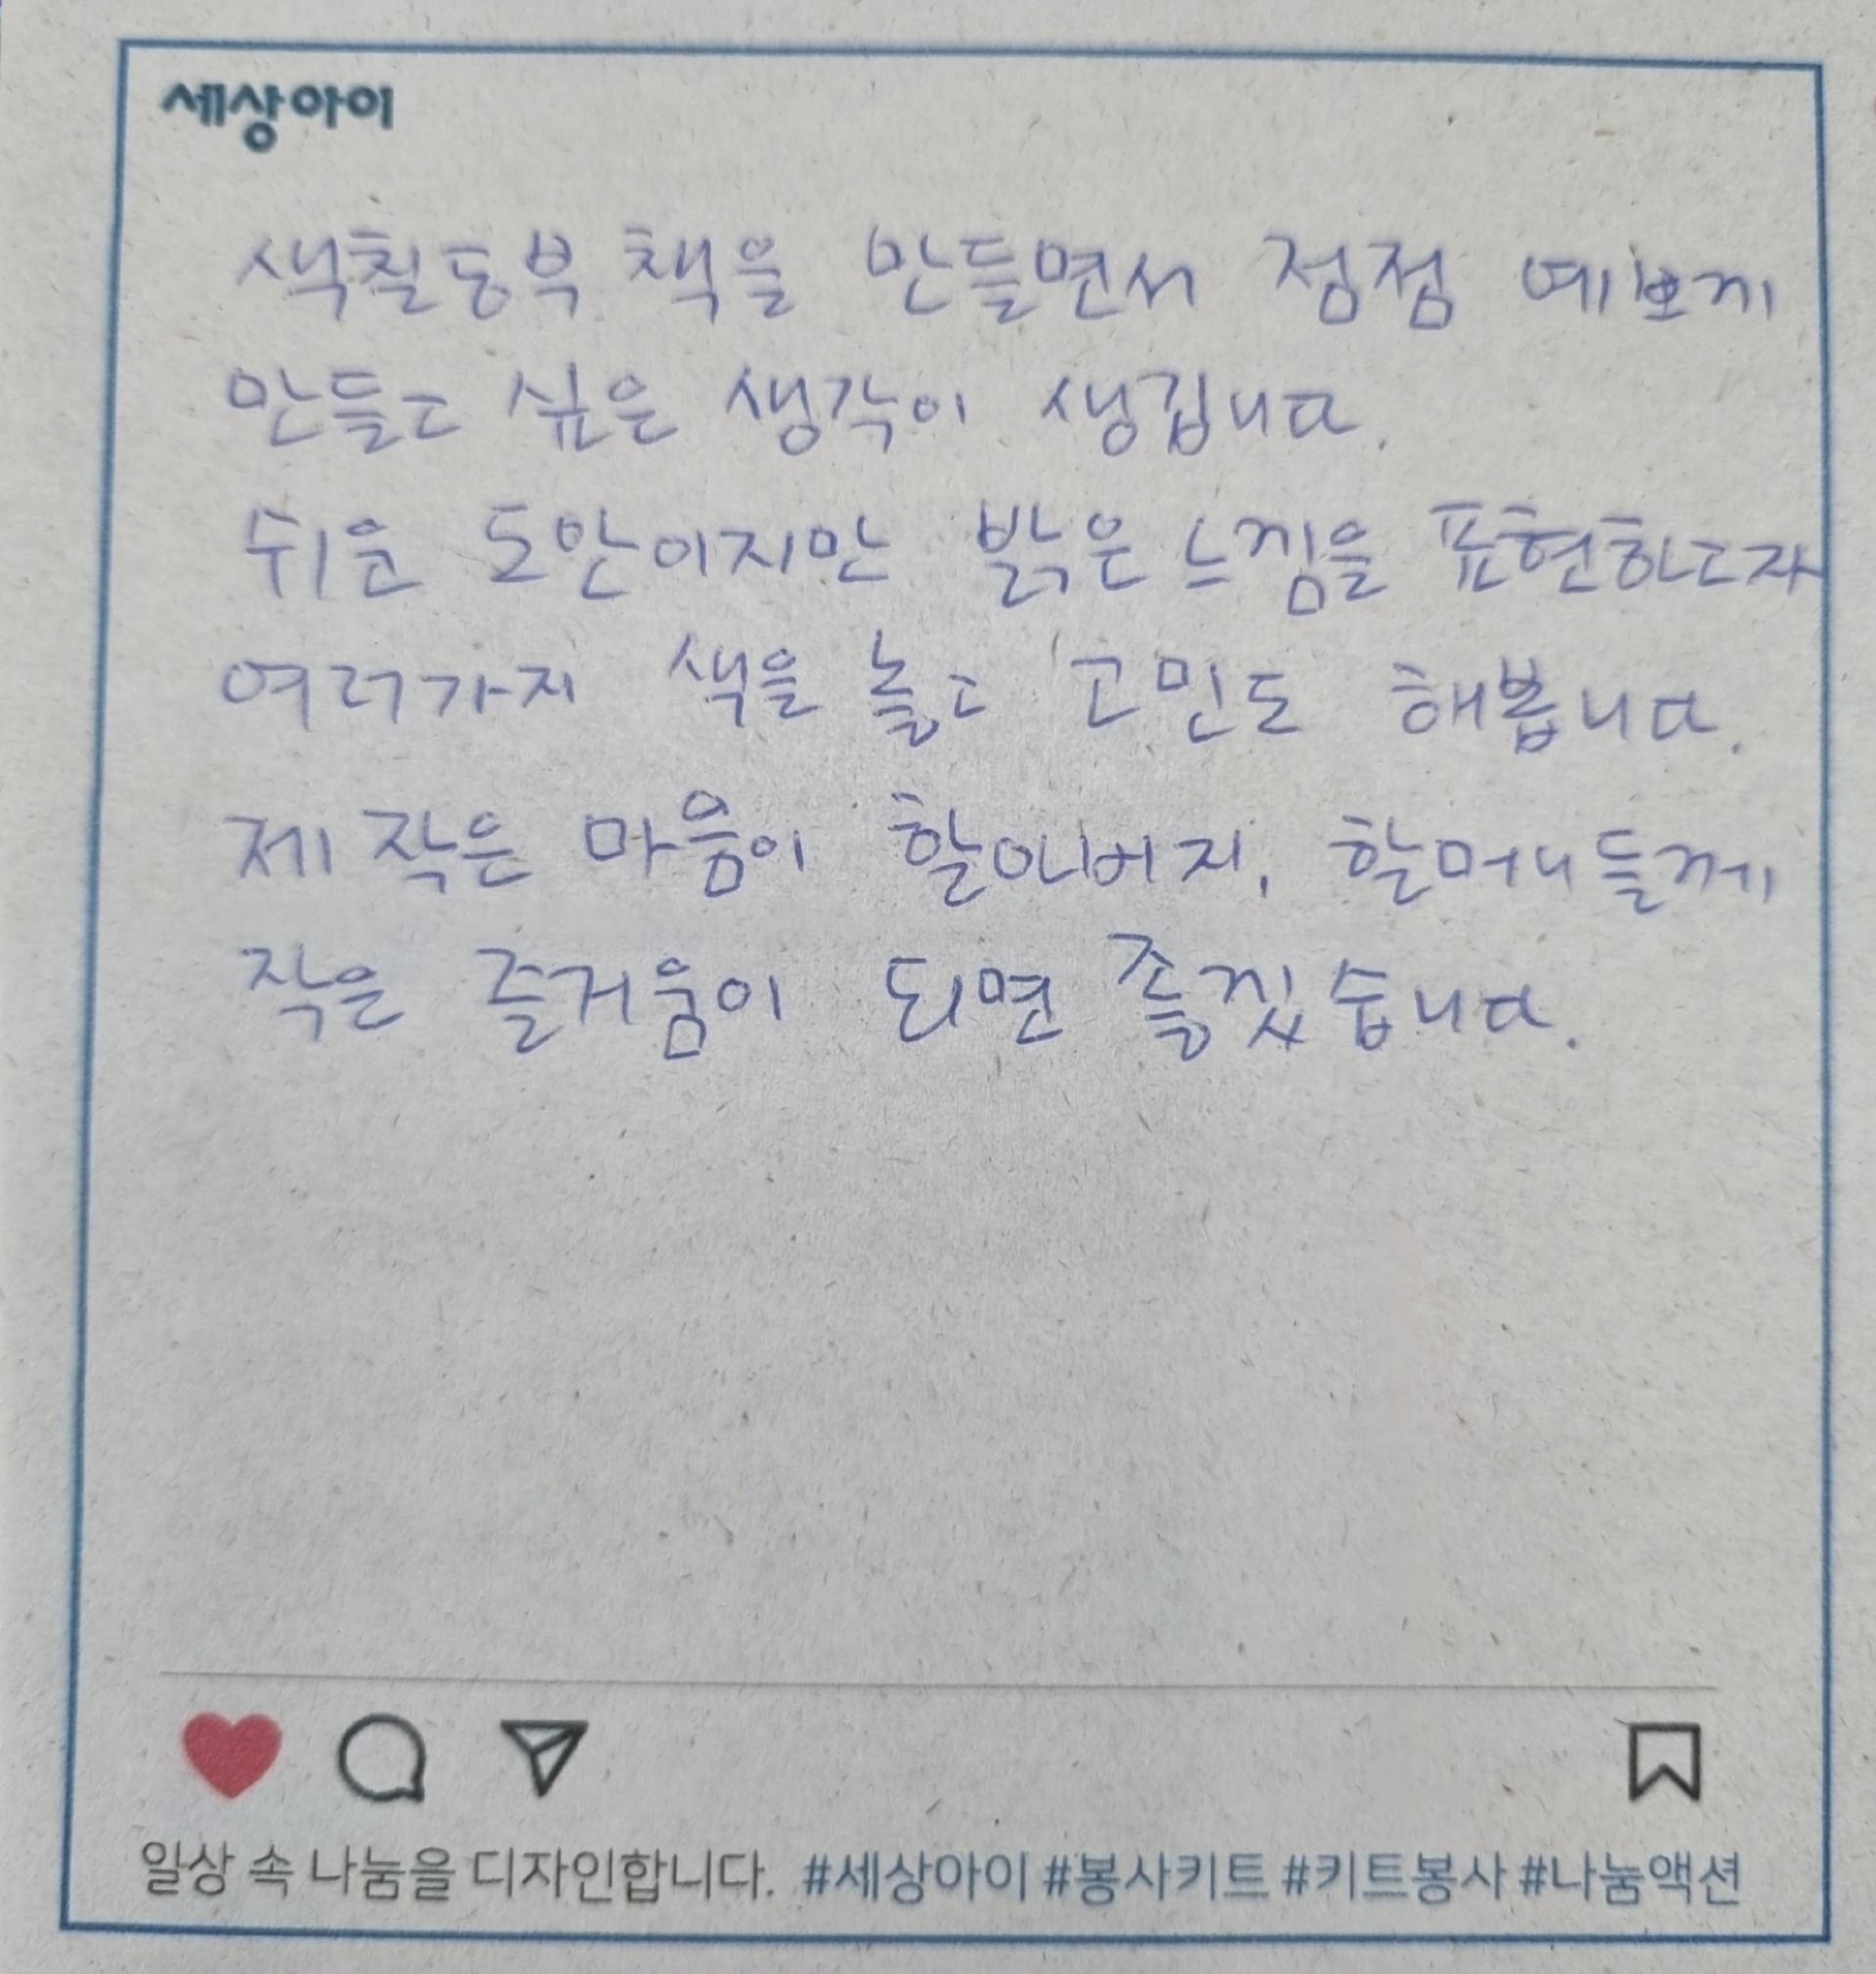 세상아이
색칠동부 책을 만들면서 점점 예쁘게
만들고 싶은 생각이 생깁니다.
쉬운 도안이지만 밝은 느낌을 표현하고자
여러가지 색을 놓고 고민도 해봅니다.
제 작은 마음이 할아버지, 할머니들께
작은 즐거움이 되면 좋겠습니다.
일상 속 나눔을 디자인합니다. #세상아이 #봉사키트 #키트봉사 #나눔액션